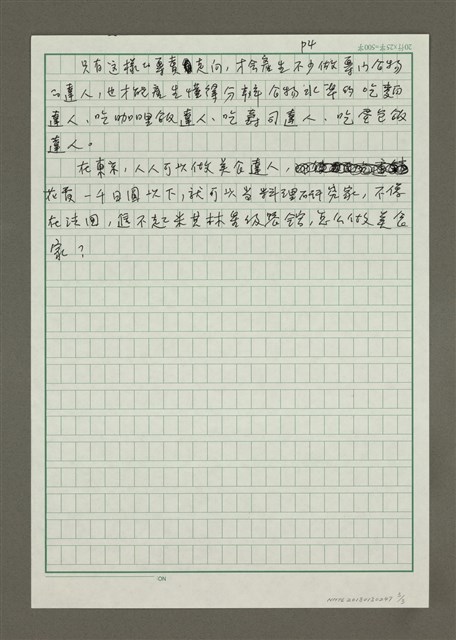 P4
20行×25字=500字
只有这樣的專賣走向，才会產生不少做專门食物
的達人，也才能產生懂得分辨食物水準的吃麵
達人、吃咖哩飯達人、吃壽司達人、吃蛋包飯
達人。
在東京，人人可以做美食達人，
花費一千日圓以下，就可以当料理研究家，不像
在法国，僱不起米其林星级餐館，怎么做美食
家？
NO.
NMTL20150120247 5/5